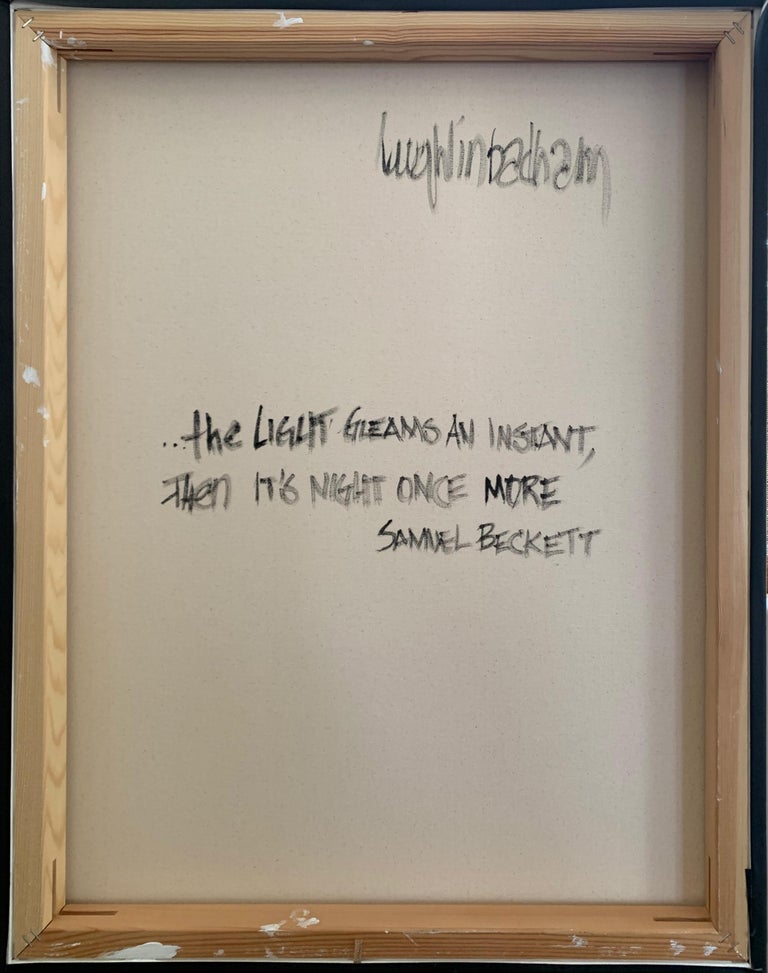 ..the LIGHT GLEAMS AN INSTANT,
THEN IT'S NIGHT ONCE MORE
SAMUEL BECKETT